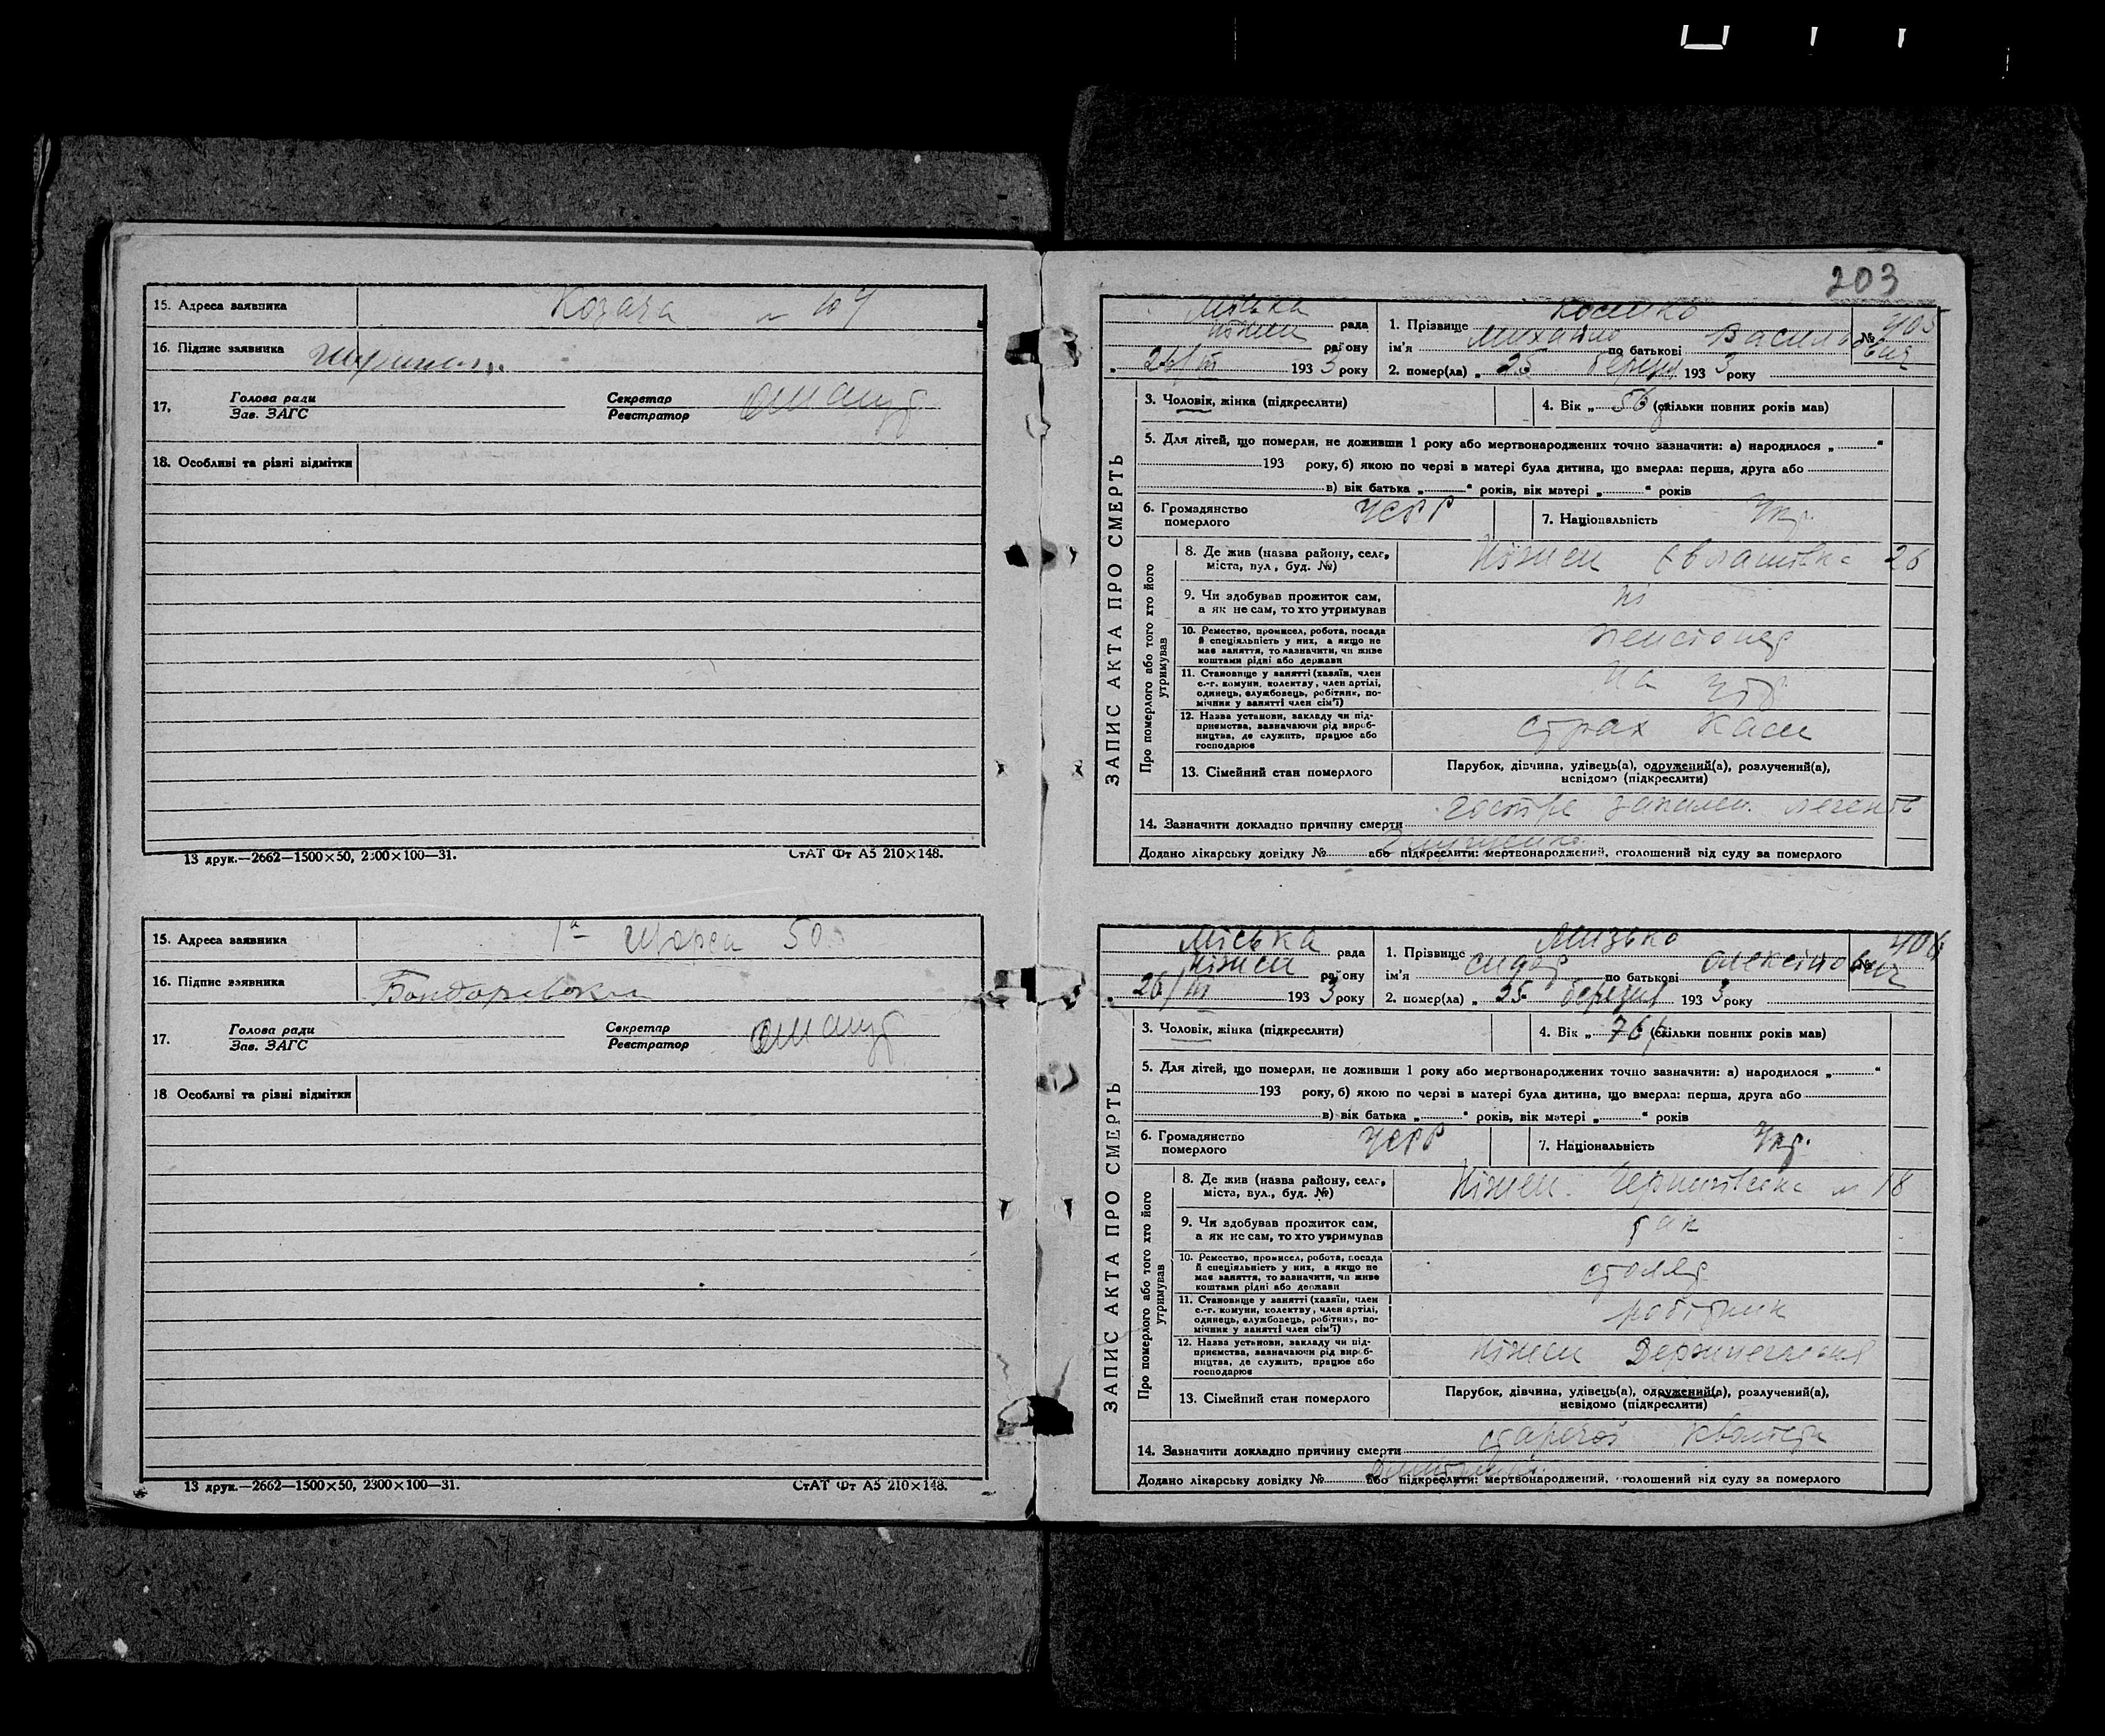 15. Адреса заявника Козача № 104
16. Підпис заявника
17. Голова ради Зав. ЗАГС Секретар Реєстратор
18. Особливі та різні відмітки
13 друк.—2662—1500×50, 2300×100—31. СтАТ Фт А5 210×148.
15. Адреса заявника 1а Щорса 50
16. Підпис заявника Бондаревська
17. Голова ради Зав. ЗАГС Секретар Реєстратор
18. Особливі та різні відмітки
13 друк.—2662—1500×50, 2300×100—31. СтАТ Фт А5 210×148.
203
ЗАПИС АКТА ПРО СМЕРТЬ
Міська рада
Ніжен району
„ 26/III 1933 року
№ 405
1. Прізвище
ім'я Михайло по батькові Васильович
2. помер(ла) „ 25 березня 1933 року
3. Чоловік, жінка (підкреслити)
4. Вік „ 56 (скільки повних років мав)
5. Для дітей, що померли, не доживши 1 року або мертвонароджених точно зазначити: а) народилося „ “
193 року, б) якою по черзі в матері була дитина, що вмерла: перша, друга або
в) вік батька „ “ років, вік матері „ “ років
6. Громадянство померлого УСРР
7. Національність Укр.
Про померлого або того хто його утримував
8. Де жив (назва району, села, міста, вул., буд. №) Ніжен Євлашівка 26
9. Чи здобував прожиток сам, а як не сам, то хто утримував ні
10. Ремество, промисел, робота, посада й спеціяльність у них, а якщо не має заняття, то зазначити, чи живе коштами рідні або держави пенсіонер
11. Становище у занятті (хазяїн, член с.-г. комуни, колективу, член артілі, одинець, службовець, робітник, помічник у занятті член сім'ї) на
12. Назва установи, закладу чи підприємства, зазначаючи рід виробництва, де служить, працює або господарює страх каси
13. Сімейний стан померлого Парубок, дівчина, удівець(а), одружений(а), розлучений(а), невідомо (підкреслити)
14. Зазначити докладно причину смерти гостре запален. легенів
Додано лікарську довідку № або підкреслити: мертвонароджений, оголошений від суду за померлого
ЗАПИС АКТА ПРО СМЕРТЬ
Міська рада
Ніжен району
„ 26/III 1933 року
№ 406
1. Прізвище Мизько
ім'я Сидор по батькові Олексійович
2. помер(ла) „ 25 березня 1933 року
3. Чоловік, жінка (підкреслити)
4. Вік „ 76 (скільки повних років мав)
5. Для дітей, що померли, не доживши 1 року або мертвонароджених точно зазначити: а) народилося „ “
193 року, б) якою по черзі в матері була дитина, що вмерла: перша, друга або
в) вік батька „ “ років, вік матері „ “ років
6. Громадянство померлого УСРР
7. Національність Укр.
Про померлого або того хто його утримував
8. Де жив (назва району, села, міста, вул., буд. №) Ніжен. Чернігівська № 18
9. Чи здобував прожиток сам, а як не сам, то хто утримував так
10. Ремество, промисел, робота, посада й спеціяльність у них, а якщо не має заняття, то зазначити, чи живе коштами рідні або держави столяр
11. Становище у занятті (хазяїн, член с.-г. комуни, колективу, член артілі, одинець, службовець, робітник, помічник у занятті член сім'ї) робітник
12. Назва установи, закладу чи підприємства, зазначаючи рід виробництва, де служить, працює або господарює Ніжен
13. Сімейний стан померлого Парубок, дівчина, удівець(а), одружений(а), розлучений(а), невідомо (підкреслити)
14. Зазначити докладно причину смерти
Додано лікарську довідку № або підкреслити: мертвонароджений, оголошений від суду за померлого